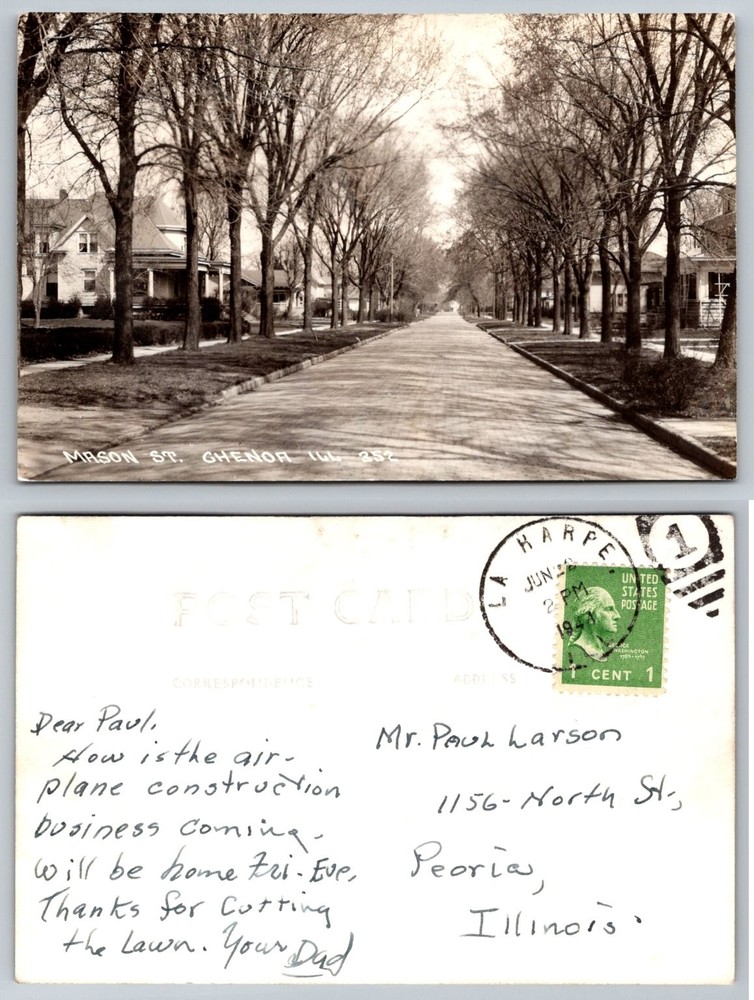 MASON ST. CHENOA ILL 252
POST CARD
CORRESPONDENCE
ADDRESS
LA HARPE
JUN
2 PM
ILL.
1
UNITED
STATES
POSTAGE
GEORGE
WASHINGTON
1789-1797
1 CENT 1
Dear Paul,
How is the air-
plane construction
business coming.
Will be home Fri-Eve,
Thanks for Cutting
the Lawn. Your Dad
Mr. Paul Larson
1156-North St.,
Peoria,
Illinois.